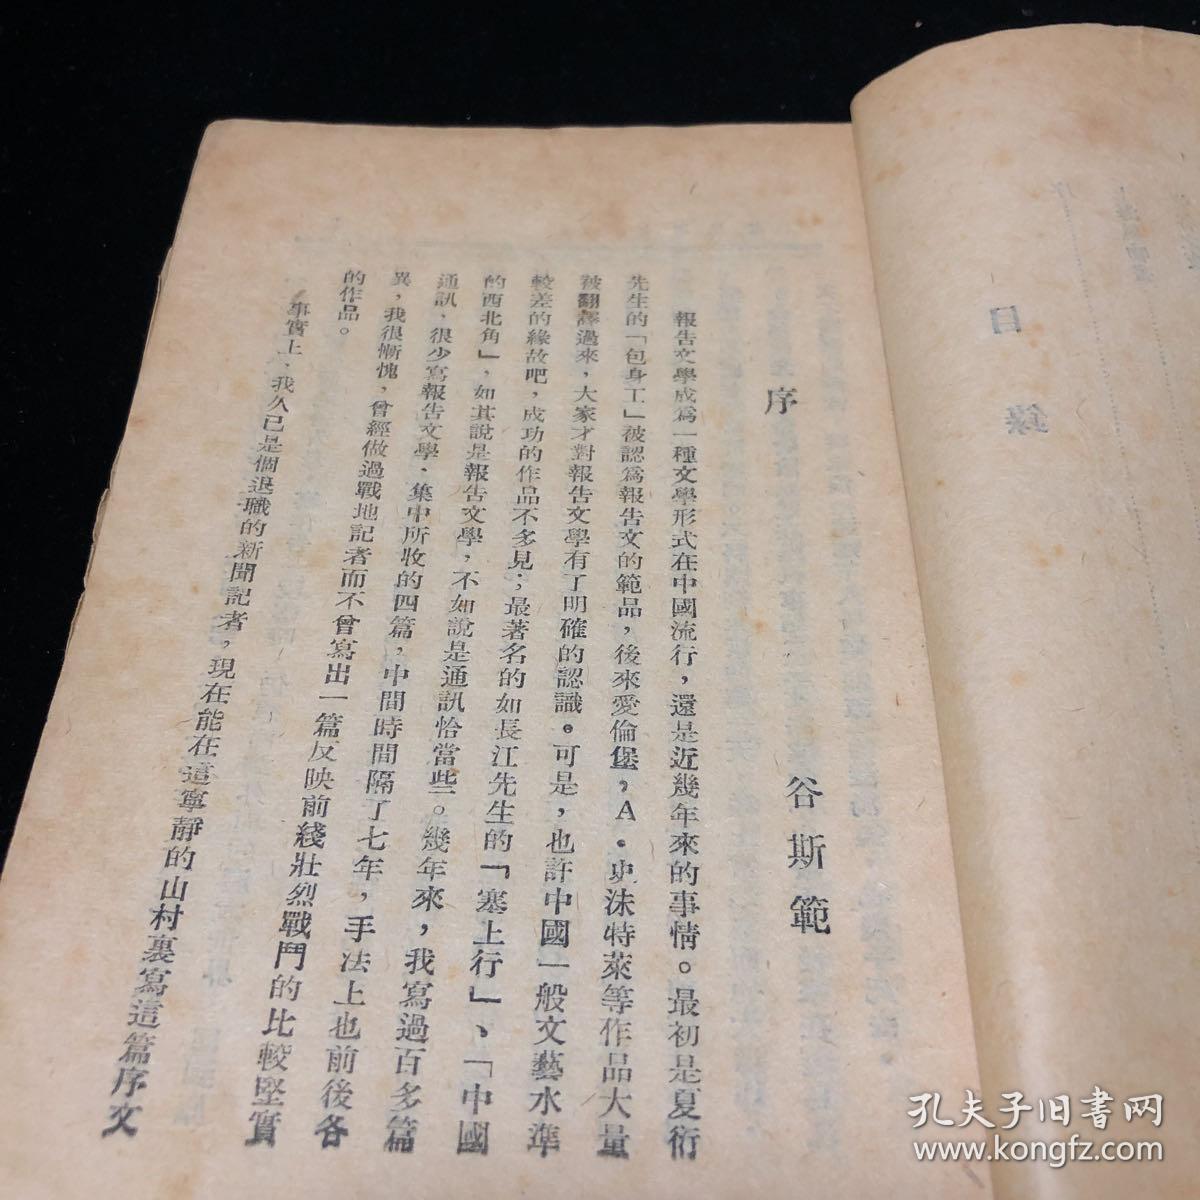 目錄
序
谷斯範
報告文學成爲一種文學形式在中國流行，還是近幾年來的事情。最初是夏衍
先生的「包身工」被認爲報告文的範品，後來愛倫堡，A·史沫特萊等作品大量
被翻譯過來，大家才對報告文學有了明確的認識。可是，也許中國一般文藝水準
較差的緣故吧，成功的作品不多見；最著名的如長江先生的「塞上行」、「中國
的西北角」，如其說是報告文學，不如說是通訊恰當些。幾年來，我寫過百多篇
通訊，很少寫報告文學．集中所收的四篇，中間時間隔了七年，手法上也前後各
異，我很慚愧，曾經做過戰地記者而不曾寫出一篇反映前綫壯烈戰鬥的比較堅實
的作品。
事實上，我久已是個退職的新聞記者，現在能在這寧靜的山村裏寫這篇序文
孔夫子旧書网
www.kongfz.com